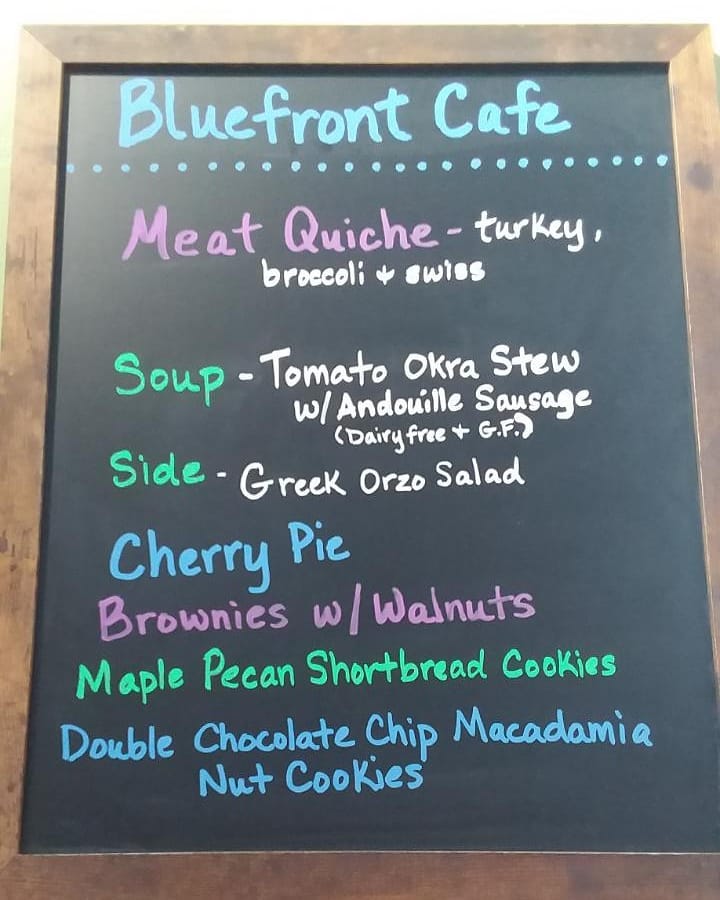 Bluefront Cafe
Meat Quiche - turkey,
broccoli + swiss
Soup - Tomato Okra Stew
w/ Andouille Sausage
(Dairy free + G.F.)
Side - Greek Orzo Salad
Cherry Pie
Brownies w/ Walnuts
Maple Pecan Shortbread Cookies
Double Chocolate Chip Macadamia
Nut Cookies